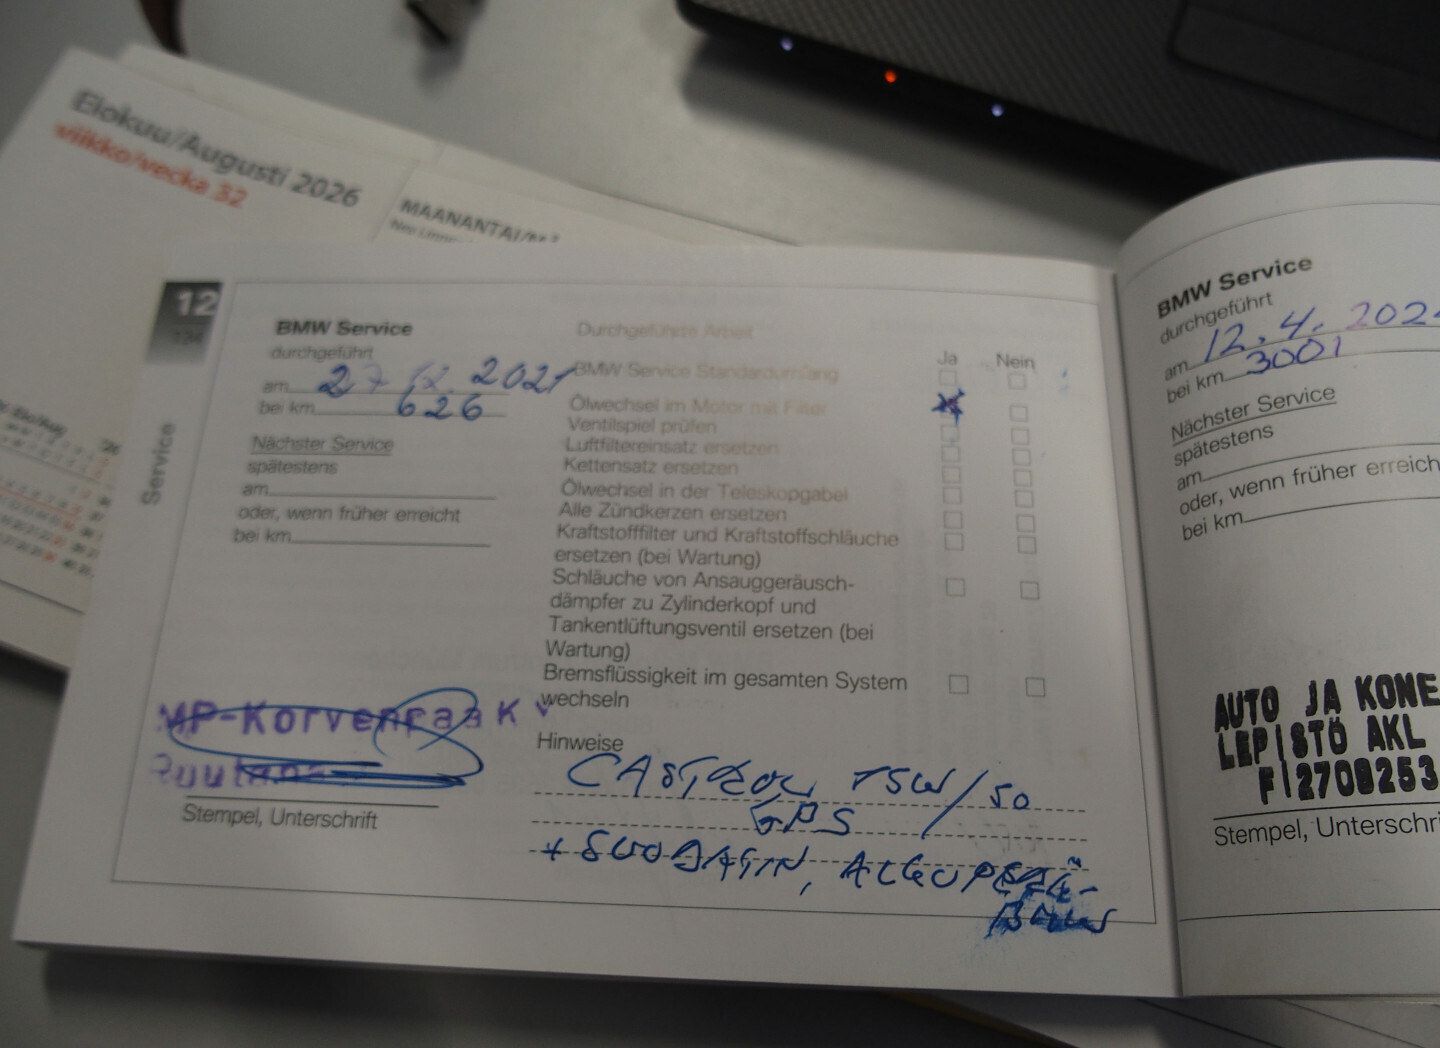 Elokuu/Augusti 2026
viikko/vecka 32
MAANANTAI/
12
Service
BMW Service
durchgeführt
am 27 12. 2021
bei km 626
Nächster Service
spätestens
am
oder, wenn früher erreicht
bei km
MP-Korvenraa K
Stempel, Unterschrift
Durchgeführte Arbeit
Ja Nein
BMW Service Standardumfang
Ölwechsel im Motor mit Filter
Ventilspiel prüfen
Luftfiltereinsatz ersetzen
Kettensatz ersetzen
Ölwechsel in der Teleskopgabel
Alle Zündkerzen ersetzen
Kraftstofffilter und Kraftstoffschläuche
ersetzen (bei Wartung)
Schläuche von Ansauggeräusch-
dämpfer zu Zylinderkopf und
Tankentlüftungsventil ersetzen (bei
Wartung)
Bremsflüssigkeit im gesamten System
wechseln
Hinweise
CASTROL 15W/50
GPS
+ SUODATIN,
BMW
BMW Service
durchgeführt
am 12. 4. 202
bei km 3001
Nächster Service
spätestens
am
oder, wenn früher erreich
bei km
AUTO JA KONE
LEPISTÖ AKL
FI2708253
Stempel, Unterschri